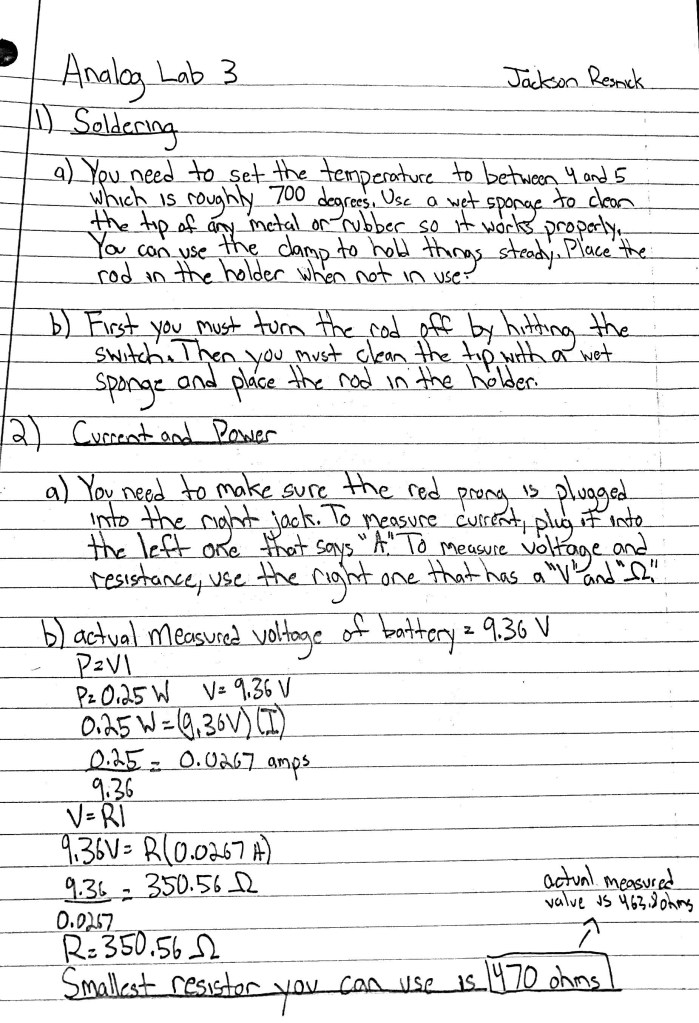 Analog Lab 3
Jackson Resnick
1) Soldering
a) You need to set the temperature to between 4 and 5
which is roughly 700 degrees. Use a wet sponge to clean
the tip of any metal or rubber so it works properly.
You can use the clamp to hold things steady. Place the
rod in the holder when not in use.
b) First you must turn the rod off by hitting the
switch. Then you must clean the tip with a wet
sponge and place the rod in the holder.
2) Current and Power
a) You need to make sure the red prong is plugged
into the right jack. To measure current, plug it into
the left one that says "A." To measure voltage and
resistance, use the right one that has a "V" and "Ω."
b) actual measured voltage of battery = 9.36 V
P=VI
P=0.25 W V=9.36 V
0.25 W=(9.36V)(I)
0.25 = 0.0267 amps
9.36
V=RI
9.36V=R(0.0267 A)
9.36 = 350.56 Ω
0.0267
R=350.56 Ω
actual measured
value is 463.8 ohms
Smallest resistor you can use is 470 ohms